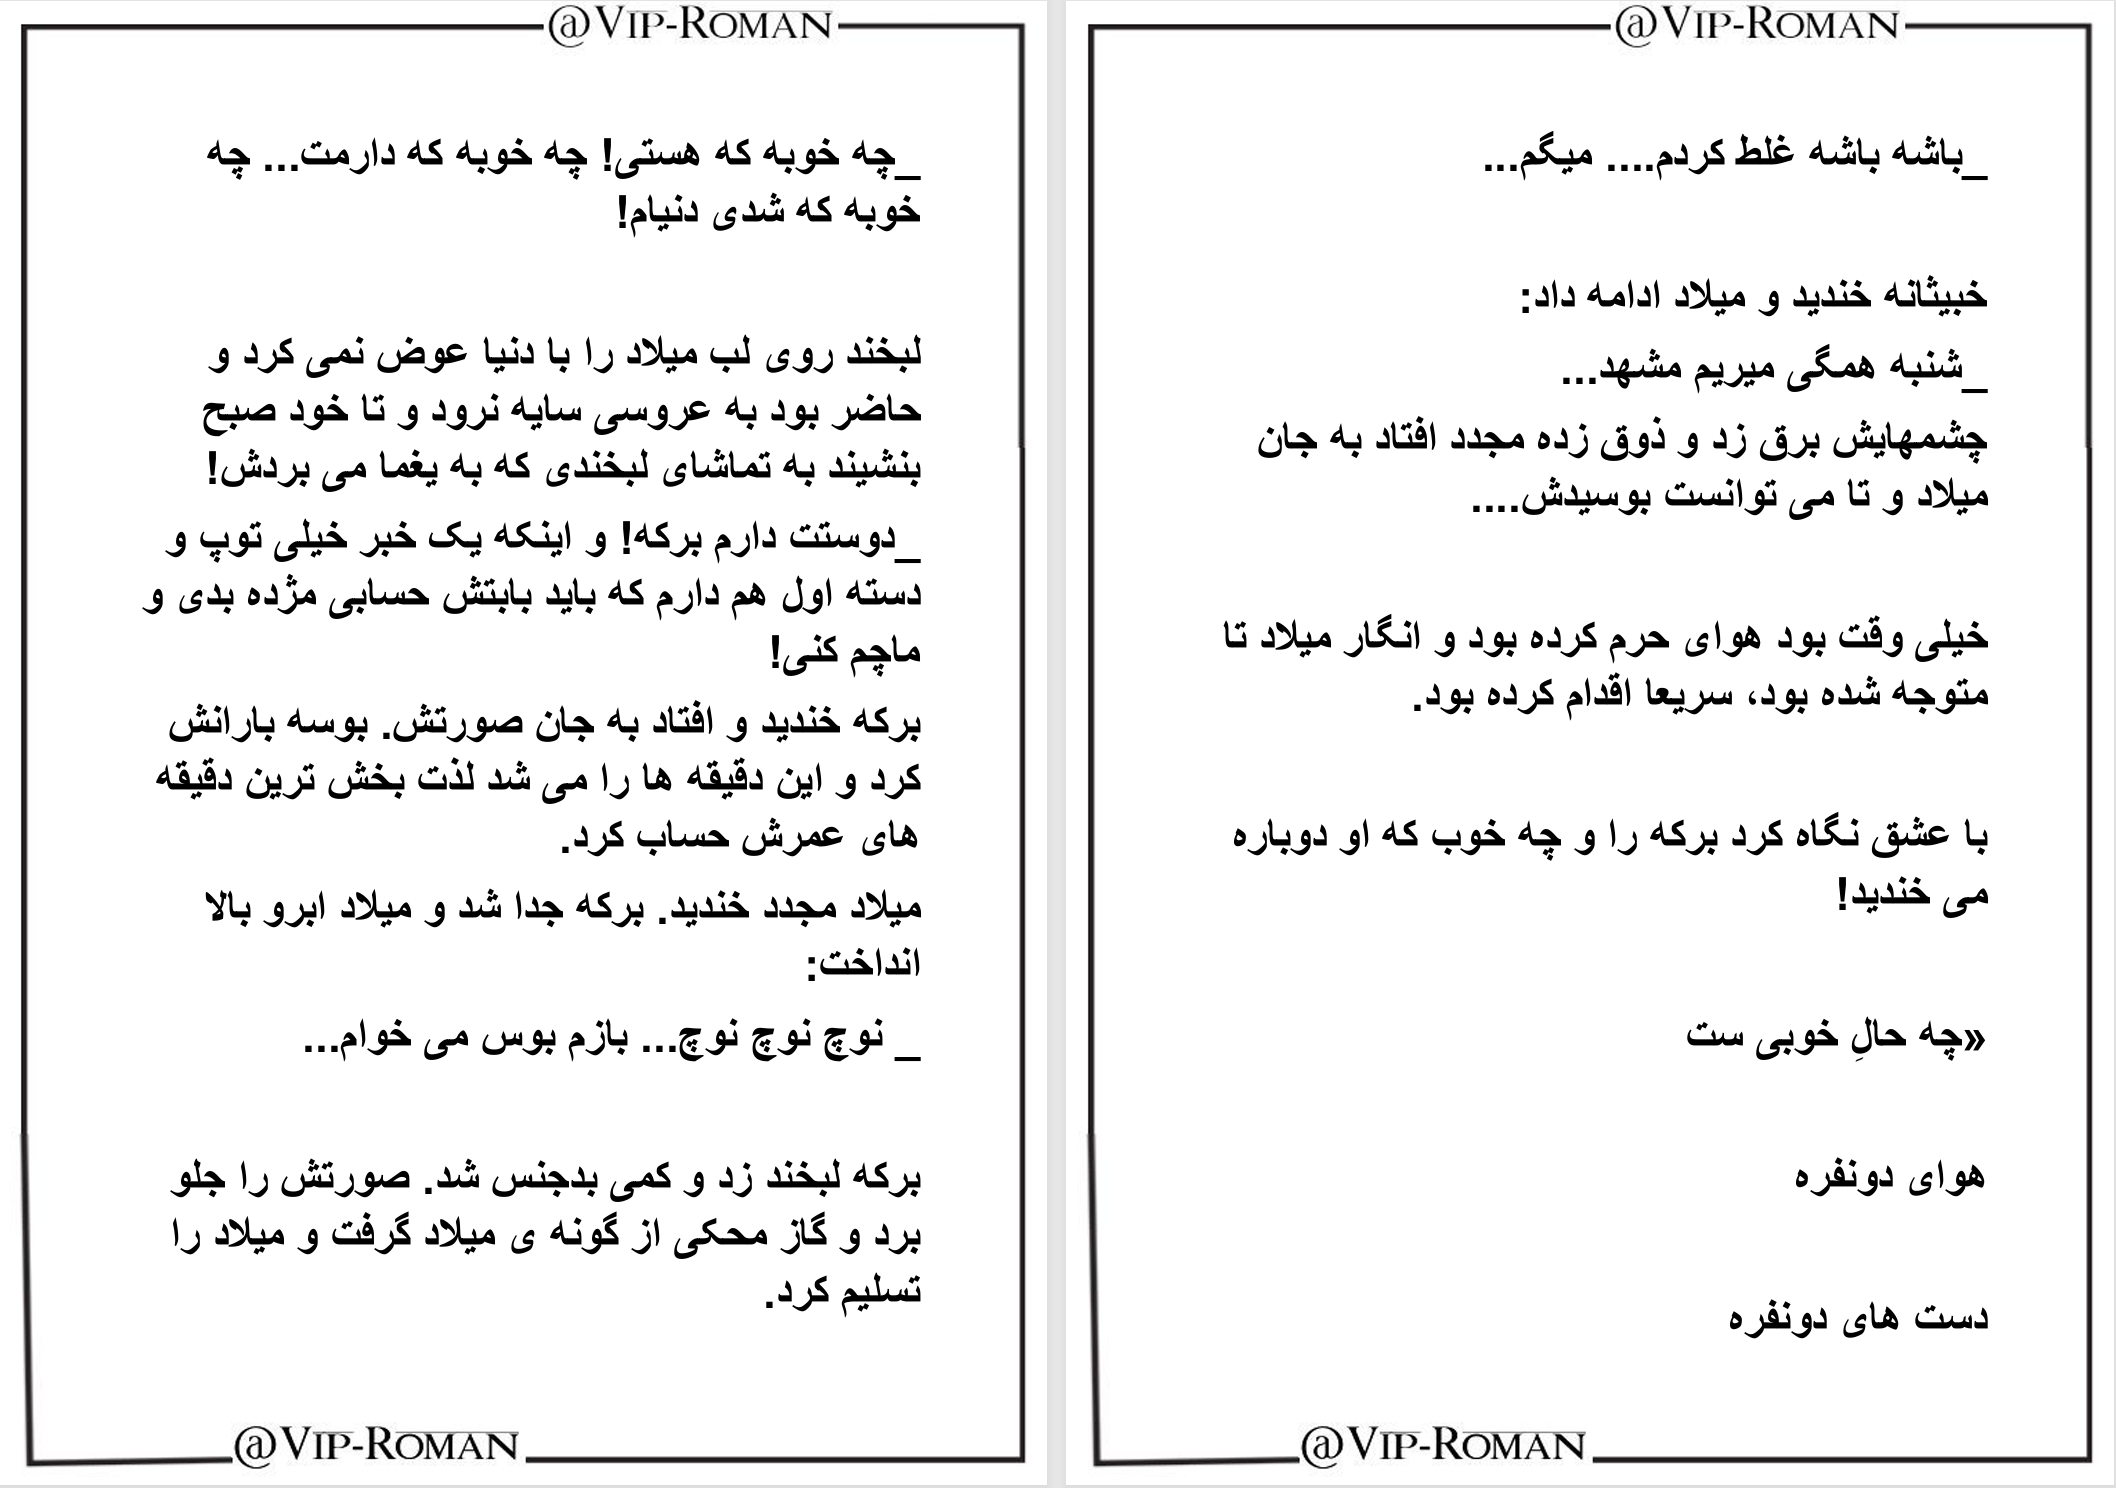 @VIP-ROMAN
_چه خوبه که هستی! چه خوبه که دارمت... چه
خوبه که شدی دنیام!
لبخند روی لب میلاد را با دنیا عوض نمی کرد و
حاضر بود به عروسی سایه نرود و تا خود صبح
بنشیند به تماشای لبخندی که به یغما می بردش!
_دوستت دارم برکه! و اینکه یک خبر خیلی توپ و
دسته اول هم دارم که باید بابتش حسابی مژده بدی و
ماچم کنی!
برکه خندید و افتاد به جان صورتش. بوسه بارانش
کرد و این دقیقه ها را می شد لذت بخش ترین دقیقه
های عمرش حساب کرد.
میلاد مجدد خندید. برکه جدا شد و میلاد ابرو بالا
انداخت:
_ نوچ نوچ نوچ... بازم بوس می خوام...
برکه لبخند زد و کمی بدجنس شد. صورتش را جلو
برد و گاز محکی از گونه ی میلاد گرفت و میلاد را
تسلیم کرد.
@VIP-ROMAN
@VIP-ROMAN
_باشه باشه غلط کردم.... میگم...
خبیثانه خندید و میلاد ادامه داد:
_شنبه همگی میریم مشهد...
چشمهایش برق زد و ذوق زده مجدد افتاد به جان
میلاد و تا می توانست بوسیدش....
خیلی وقت بود هوای حرم کرده بود و انگار میلاد تا
متوجه شده بود، سریعا اقدام کرده بود.
با عشق نگاه کرد برکه را و چه خوب که او دوباره
می خندید!
«چه حالِ خوبی ست
هوای دونفره
دست های دونفره
@VIP-ROMAN